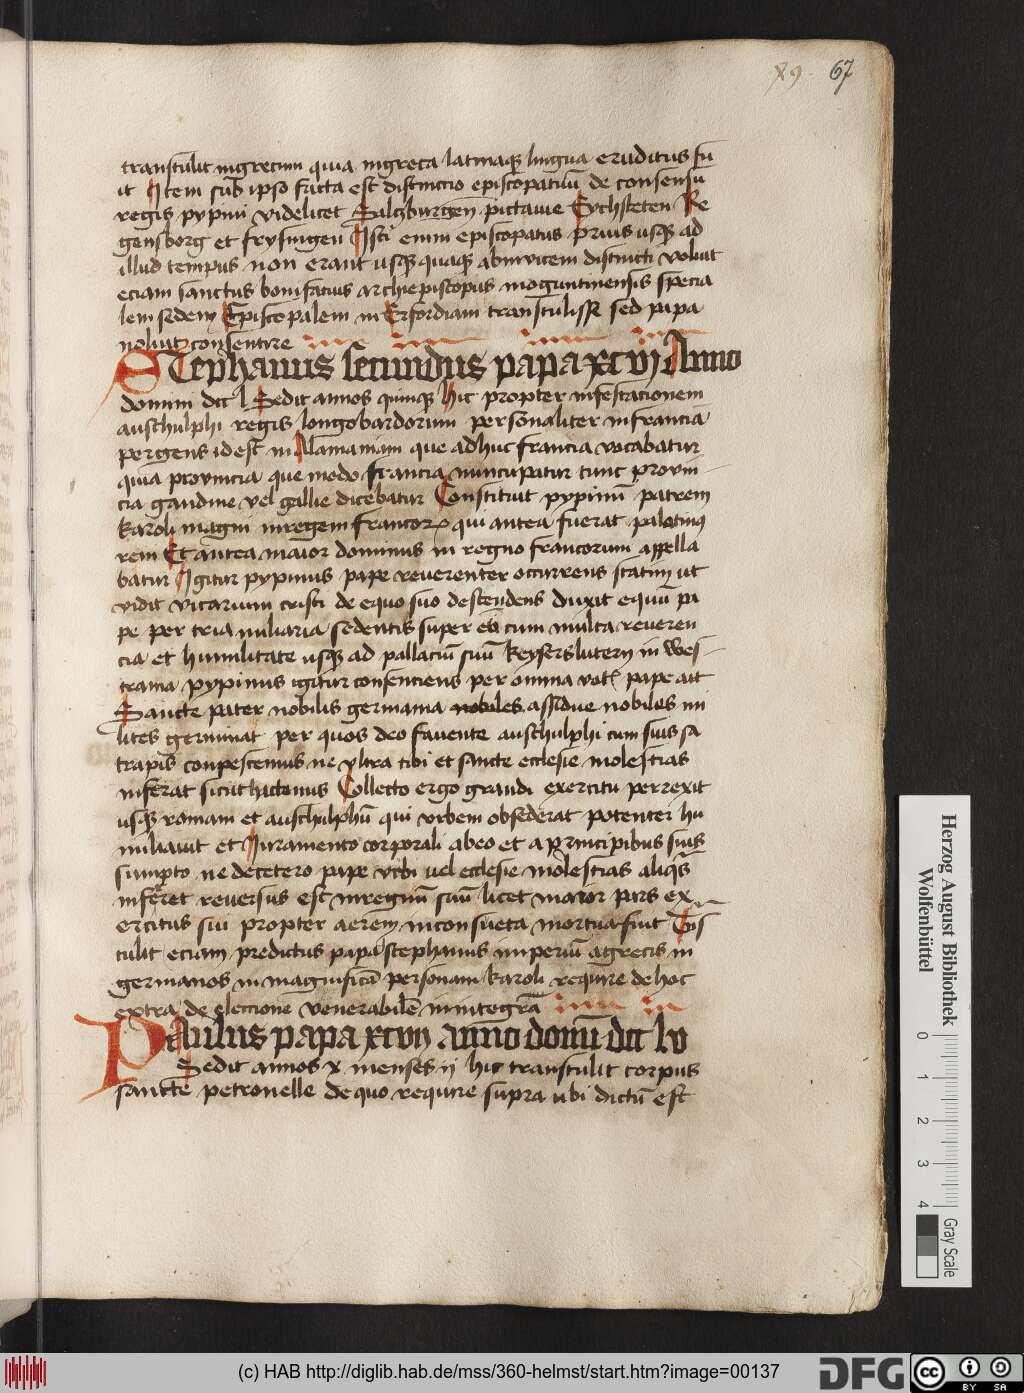 89 67
transtulit in grecum quia in greca latinaqz lingua eruditus fu
it Item sub ipso facta est distinctio episcopatuū de consensu
regis pypini videlicet Salczburgen pictauie Eychsteten Re
gensborg et frysingen Isti enim episcopatus prius usqz ad
illud tempus non erant usqz quaqz abinvicem distincti voluit
eciam sanctus bonifacius archiepiscopus moguntinensis specia
lem sedem Episcopalem in Erfordiam transtulisse sed papa
noluit consentire
Stephanus secundus papa xcvj Anno
domini dcc l Sedit annos quinqz hic propter infestacionem
austhulphi regis longobardorum personaliter in francia
pergens id est in Alamaniam que adhuc francia vocabatur
quia provincia que modo francia nuncupatur tunc provin
cia gandine vel gallie dicebatur Constituit pypinū patrem
karoli magni in regem francorꝝ qui antea fuerat palatinus
rem Et antea maior dominus in regno francorum appella
batur Igitur pypinus pape reverenter occurrens statim ut
vidit vicarium cristi de equo suo descendens duxit equū pa
pe per tria miliaria sedentis super eū cum multa reveren
cia et humilitate usqz ad pallaciū suū keyserslutern in wes
trama pypinus igitur consenciens per omnia pape ait
Sancte pater nobilis germania nobiles assidue nobilus mi
lites germinat per quos deo favente austhulphi cum suis sa
trapis conpescemus ne vltra tibi et sancte ecclesie molestias
inferat sicut hactenus Collecto ergo grandi exercitu perrexit
usqz romam et austhulphū qui vrbem obsederat potenter hu
miliauit et Iuramento corporali ab eo et a principibus suis
sumpto ne de cetero pape vrbi vel ecclesie molestias aliqs
inferret reversus est in regnū suū licet maior pars ex
ercitus sui propter aerem inconsueta mortua fuit
tulit eciam predictus papa stephanus imperiū a grecis in
germanos in magnificā personam karoli require de hoc
extra de electione venerabilē in integrā
Paulus papa xcvij anno domī dcc lv
Sedit annos x menses ij hic transtulit corpus
sancte petronelle de quo require supra ubi dictū est
Herzog August Bibliothek
Wolfenbüttel
0 1 2 3 4
Gray Scale
(c) HAB http://diglib.hab.de/mss/360-helmst/start.htm?image=00137
DFG
cc BY SA